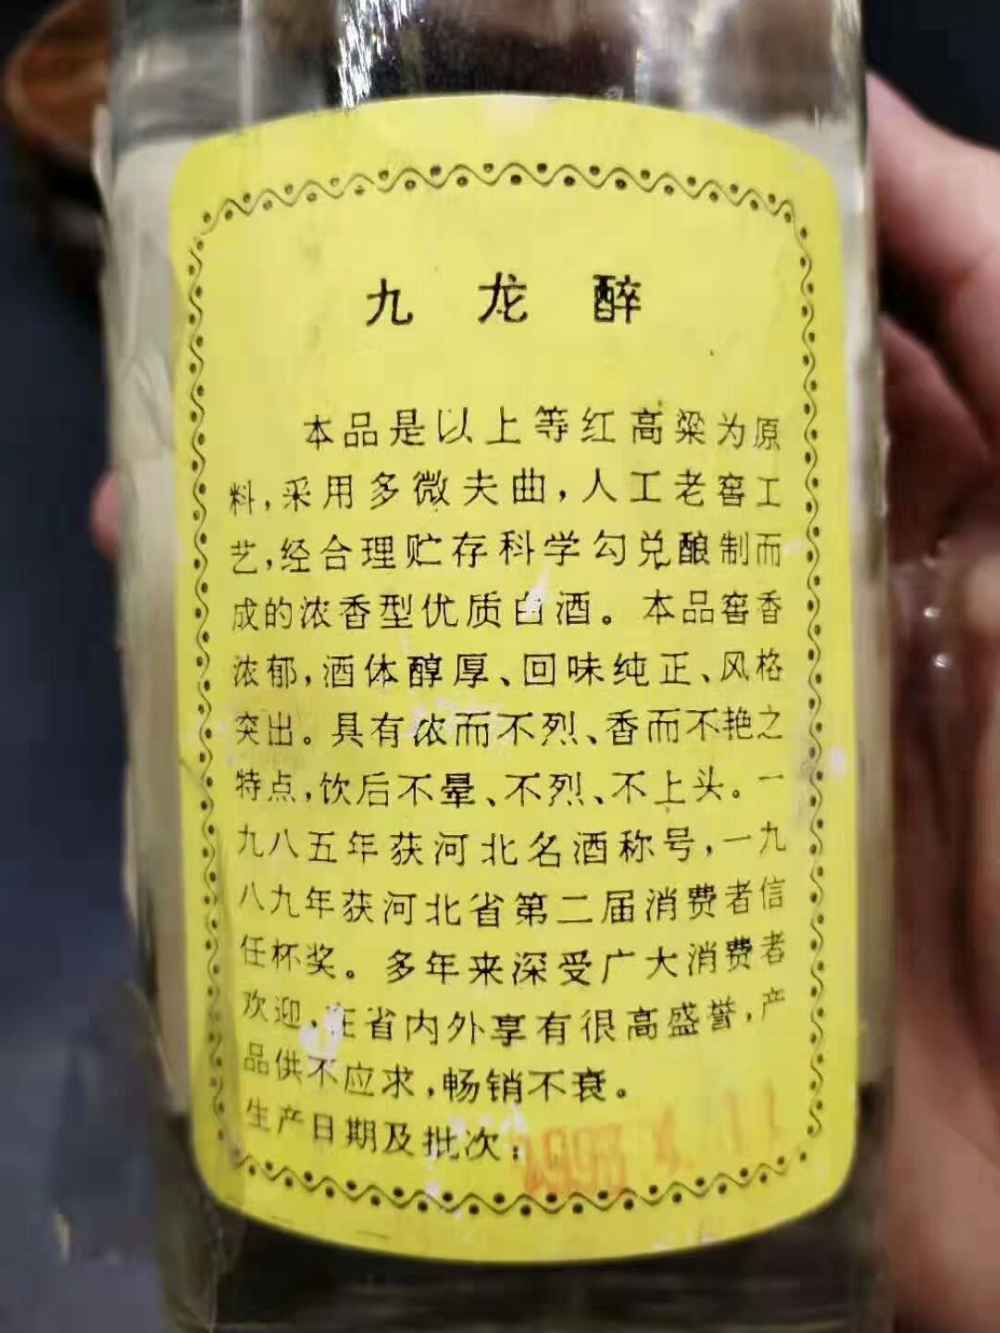 九龙醉
本品是以上等红高粱为原
料,采用多微夫曲,人工老窖工
艺,经合理贮存科学勾兑酿制而
成的浓香型优质白酒。本品窖香
浓郁,酒体醇厚、回味纯正、风格
突出。具有浓而不烈、香而不艳之
特点,饮后不晕、不烈、不上头。一
九八五年获河北名酒称号,一九
八九年获河北省第二届消费者信
任杯奖。多年来深受广大消费者
欢迎,在省内外享有很高盛誉,产
品供不应求,畅销不衰。
生产日期及批次:1993 4. 11